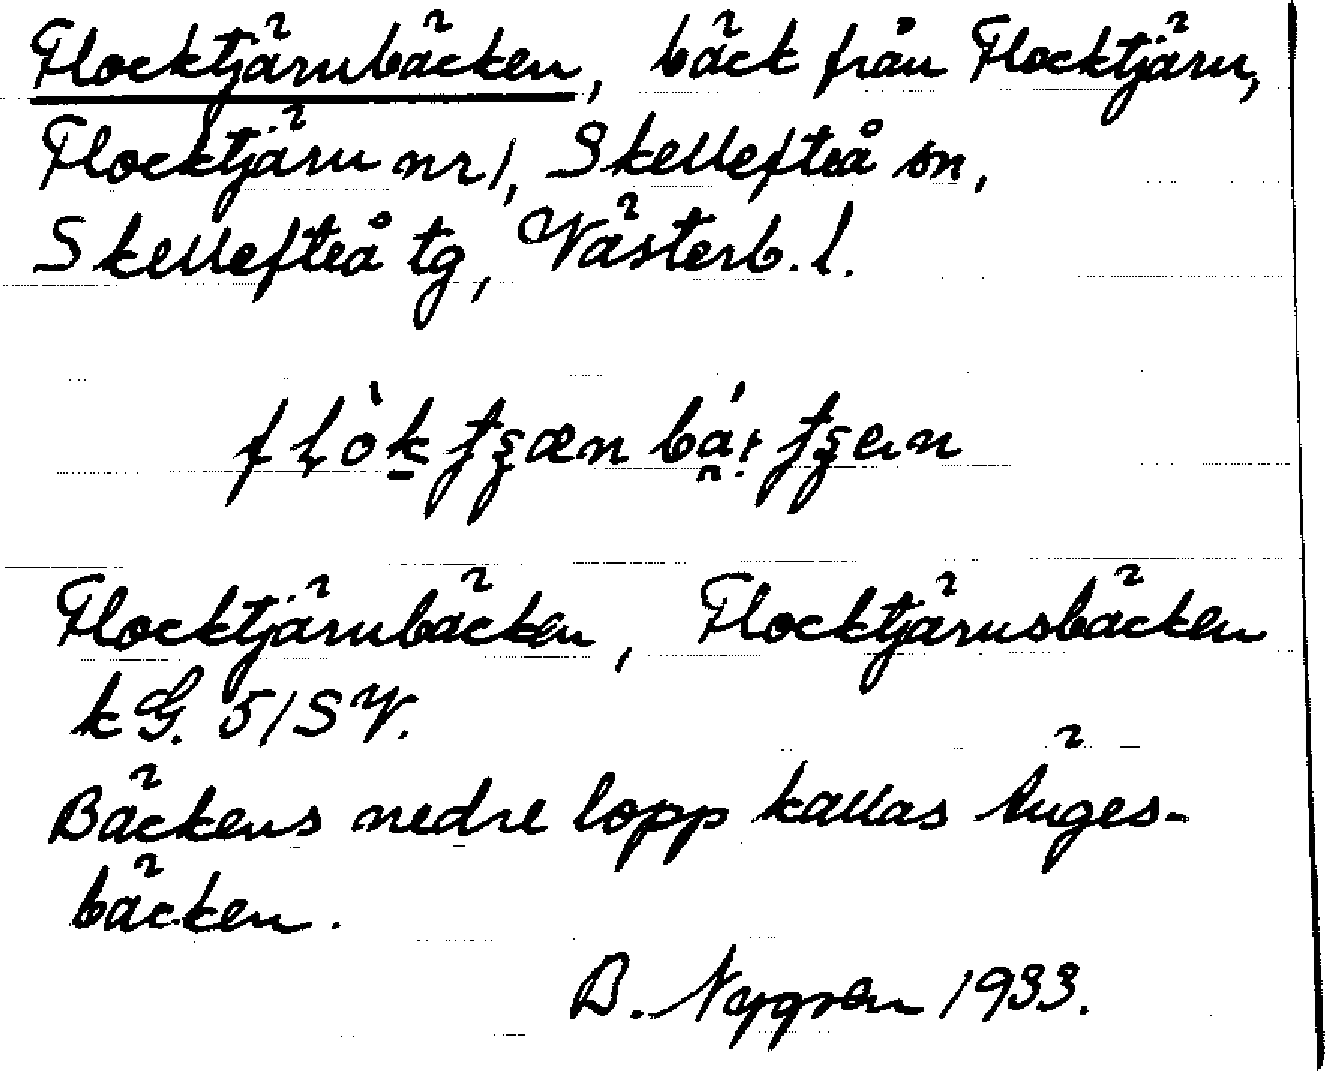 Flocktjärnbäcken, bäck från Flocktjärn,
Flocktjärn nr 1, Skellefteå sn,
Skellefteå tg, Västerb. l.
Flocktjärnbäcken, Flocktjärnsbäcken
kG. 51 SV.
Bäckens nedre lopp kallas Änges-
bäcken.
B. Nygren 1933.